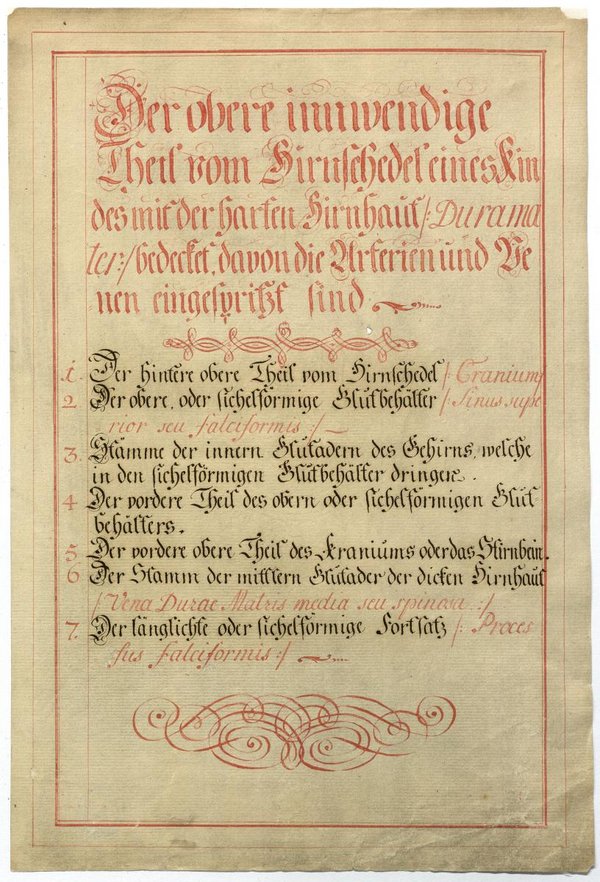 Der obere innwendige
Theil vom Hirnschedel eines Kin
des mit der harten Hirnhaut /: Dura ma
ter :/ bedecket, davon die Arterien und Ve
nen eingespritzt sind.
1. Der hintere obere Theil vom Hirnschedel /: Cranium
2. Der obere, oder sichelförmige Blutbehälter /: Sinus supe
rior seu falciformis :/
3. Stämme der innern Blutadern des Gehirns, welche
in den sichelförmigen Blutbehälter dringen.
4. Der vordere Theil des obern oder sichelförmigen Blut
behälters.
5. Der vordere obere Theil des Kraniums oder das Stirnbein.
6. Der Stamm der mittlern Blutader der dicken Hirnhaut
/: Vena Durae Matris media seu spinosa :/
7. Der länglichte oder sichelförmige Fortsatz /: Proces
sus falciformis :/